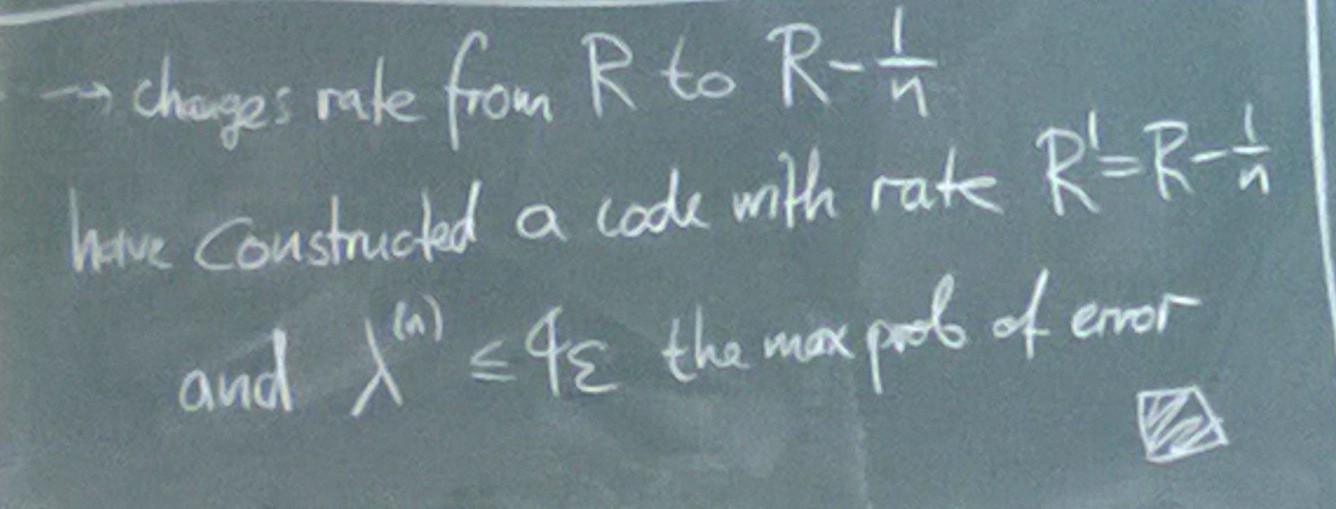 → changes rate from R to R - 1/n
have constructed a code with rate R' = R - 1/n
and λ⁽ⁿ⁾ ≤ 4ε the max prob of error